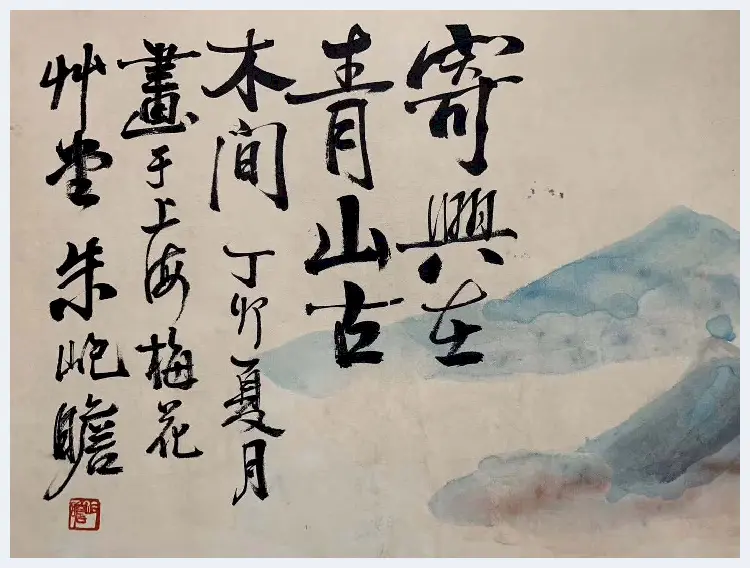 寄興在
青山古
木间丁卯夏月
畫于上海梅花
艸堂朱屺瞻
屺瞻